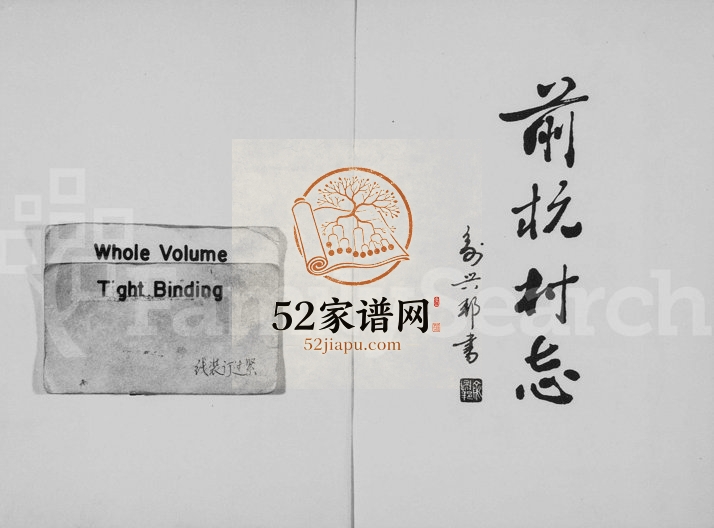 前杭村志
兴邦书
Whole Volume
Tight Binding
线装订过紧
52家谱网
52jiapu.com
FamilySearch